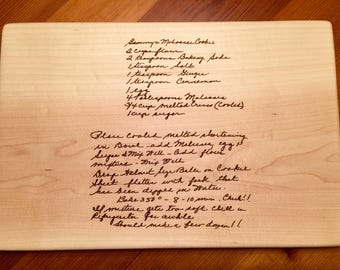 Grammy's Molasses Cookie
2 cups flour
2 teaspoons Baking Soda
1 teaspoon Salt
1 teaspoon Ginger
1 teaspoon Cinnamon
1 egg
4 Tablespoons Molasses
3/4 cup melted Crisco (Cooled)
1 cup sugar
Place cooled, melted shortening
in Bowl - add Molasses, egg &
Sugar & Mix Well - Add flour
mixture - Mix Well
Drop Walnut Size Balls on Cookie
Sheet flatten with fork that
has been dipped in Water.
Bake 350° - 8-10 min. Check!!
If mixture gets too soft chill in
Refrigerator for awhile
Should make a few dozen!!